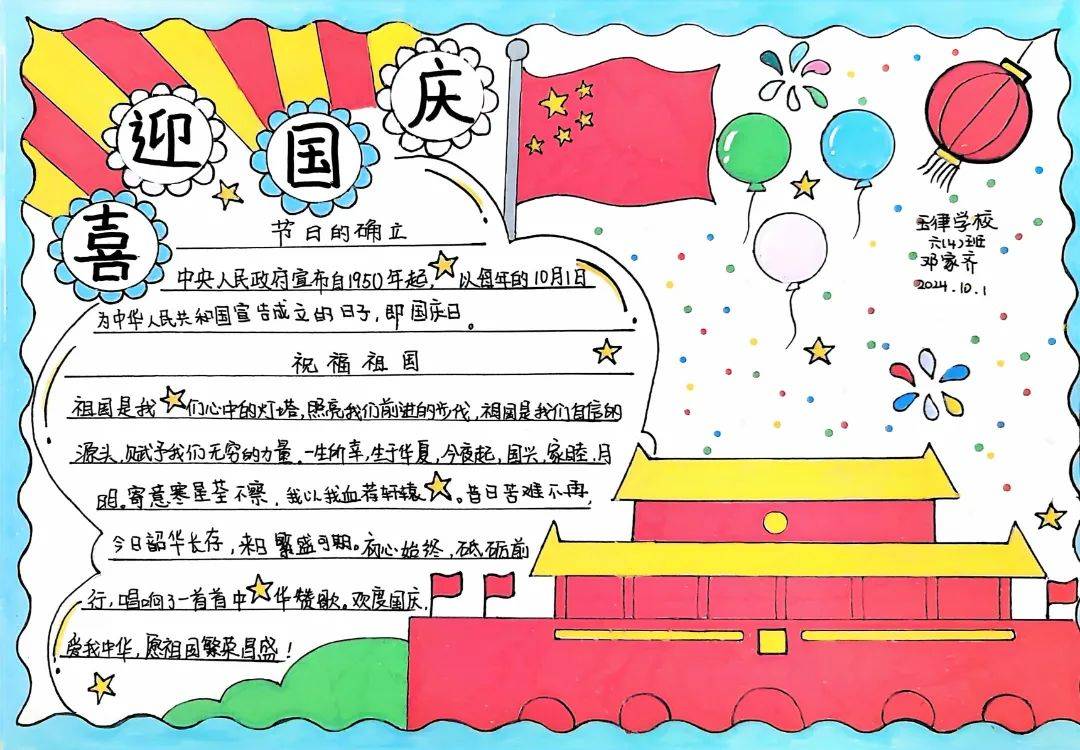 喜迎国庆
节日的确立
中央人民政府宣布自1950年起,以每年的10月1日
为中华人民共和国宣告成立的日子,即国庆日。
祝福祖国
祖国是我们心中的灯塔,照亮我们前进的步伐,祖国是我们自信的
源头,赋予我们无穷的力量。一生所幸,生于华夏,今夜起,国兴,家睦,月
明。寄意寒星荃不察,我以我血荐轩辕。昔日苦难不再,
今日韶华长存,来日繁盛可期。初心始终,砥砺前
行,唱响了一首首中华赞歌。欢度国庆,
爱我中华,愿祖国繁荣昌盛!
玉律学校
六(4)班
邓家齐
2024.10.1